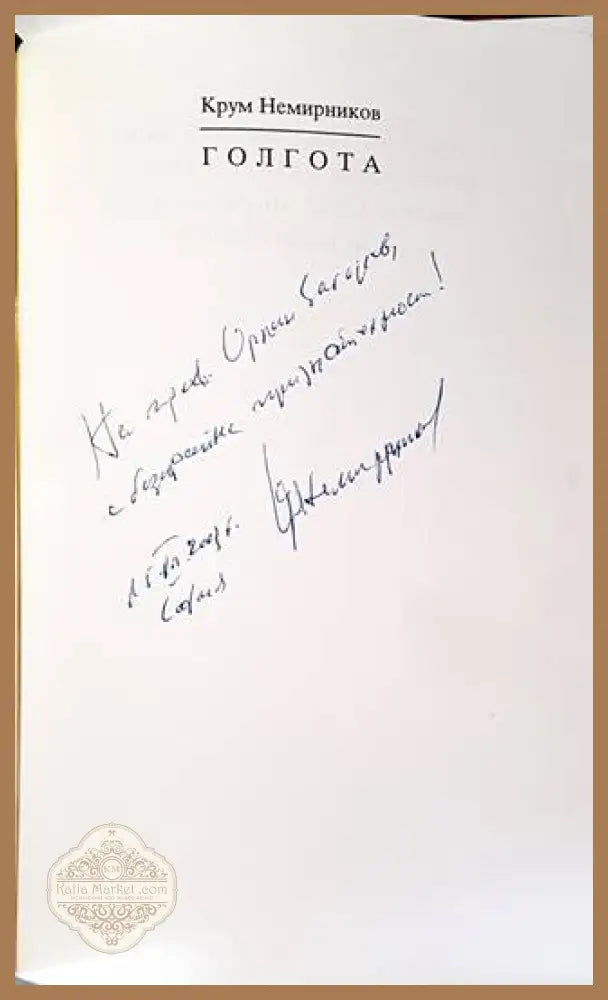 Крум Немирников
ГОЛГОТА
На проф. Орлин Загоров,
с безкрайна признателност!
София
Katia Market.com